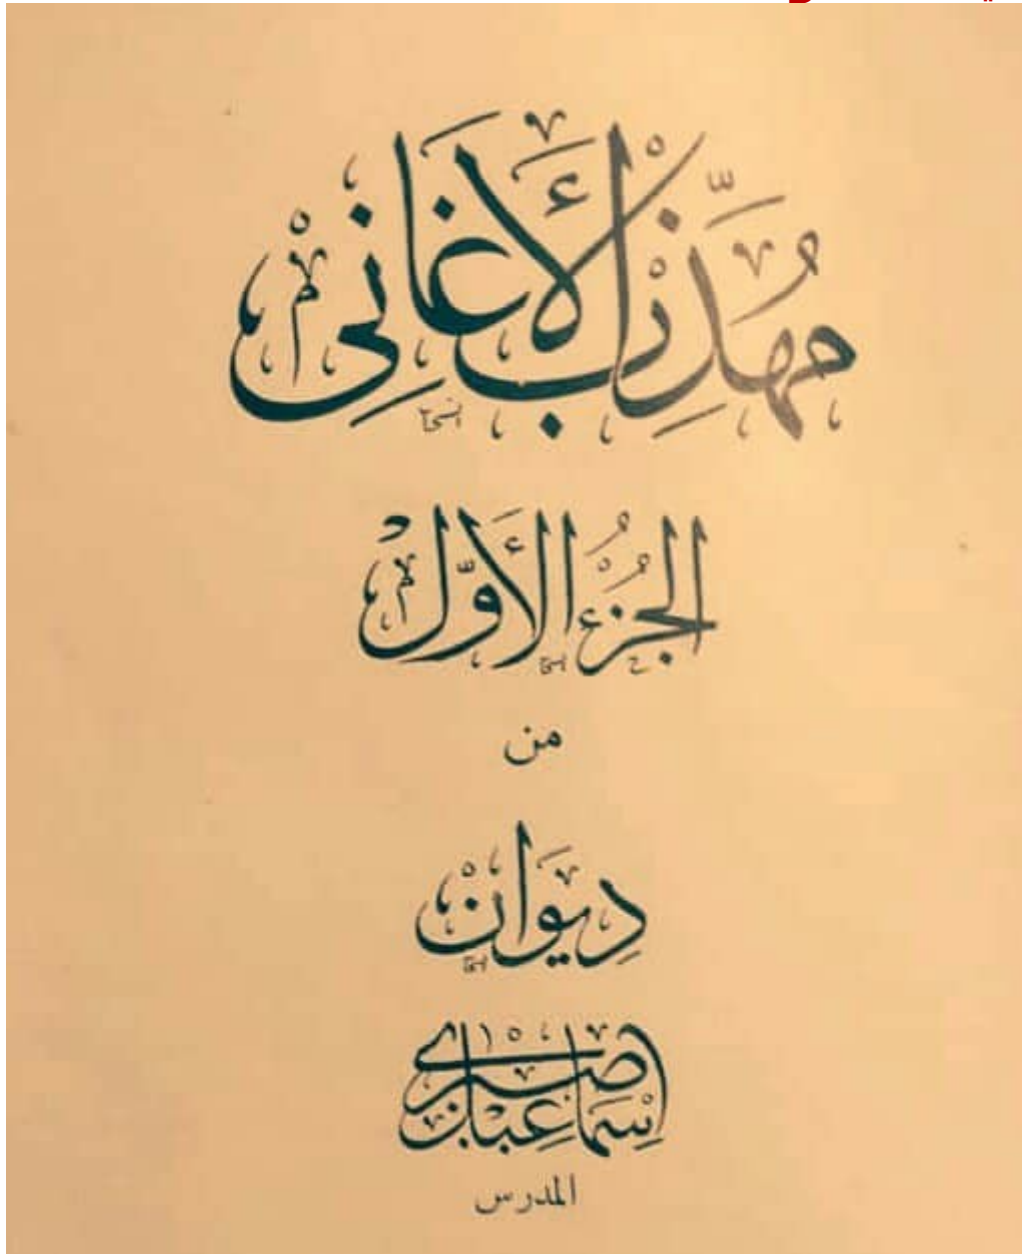 مُهَذَّبُ الْأَغَانِى
الجُزْءُ الأَوَّل
من
دِيَوانْ
إسماعيل صبرى
المدرس